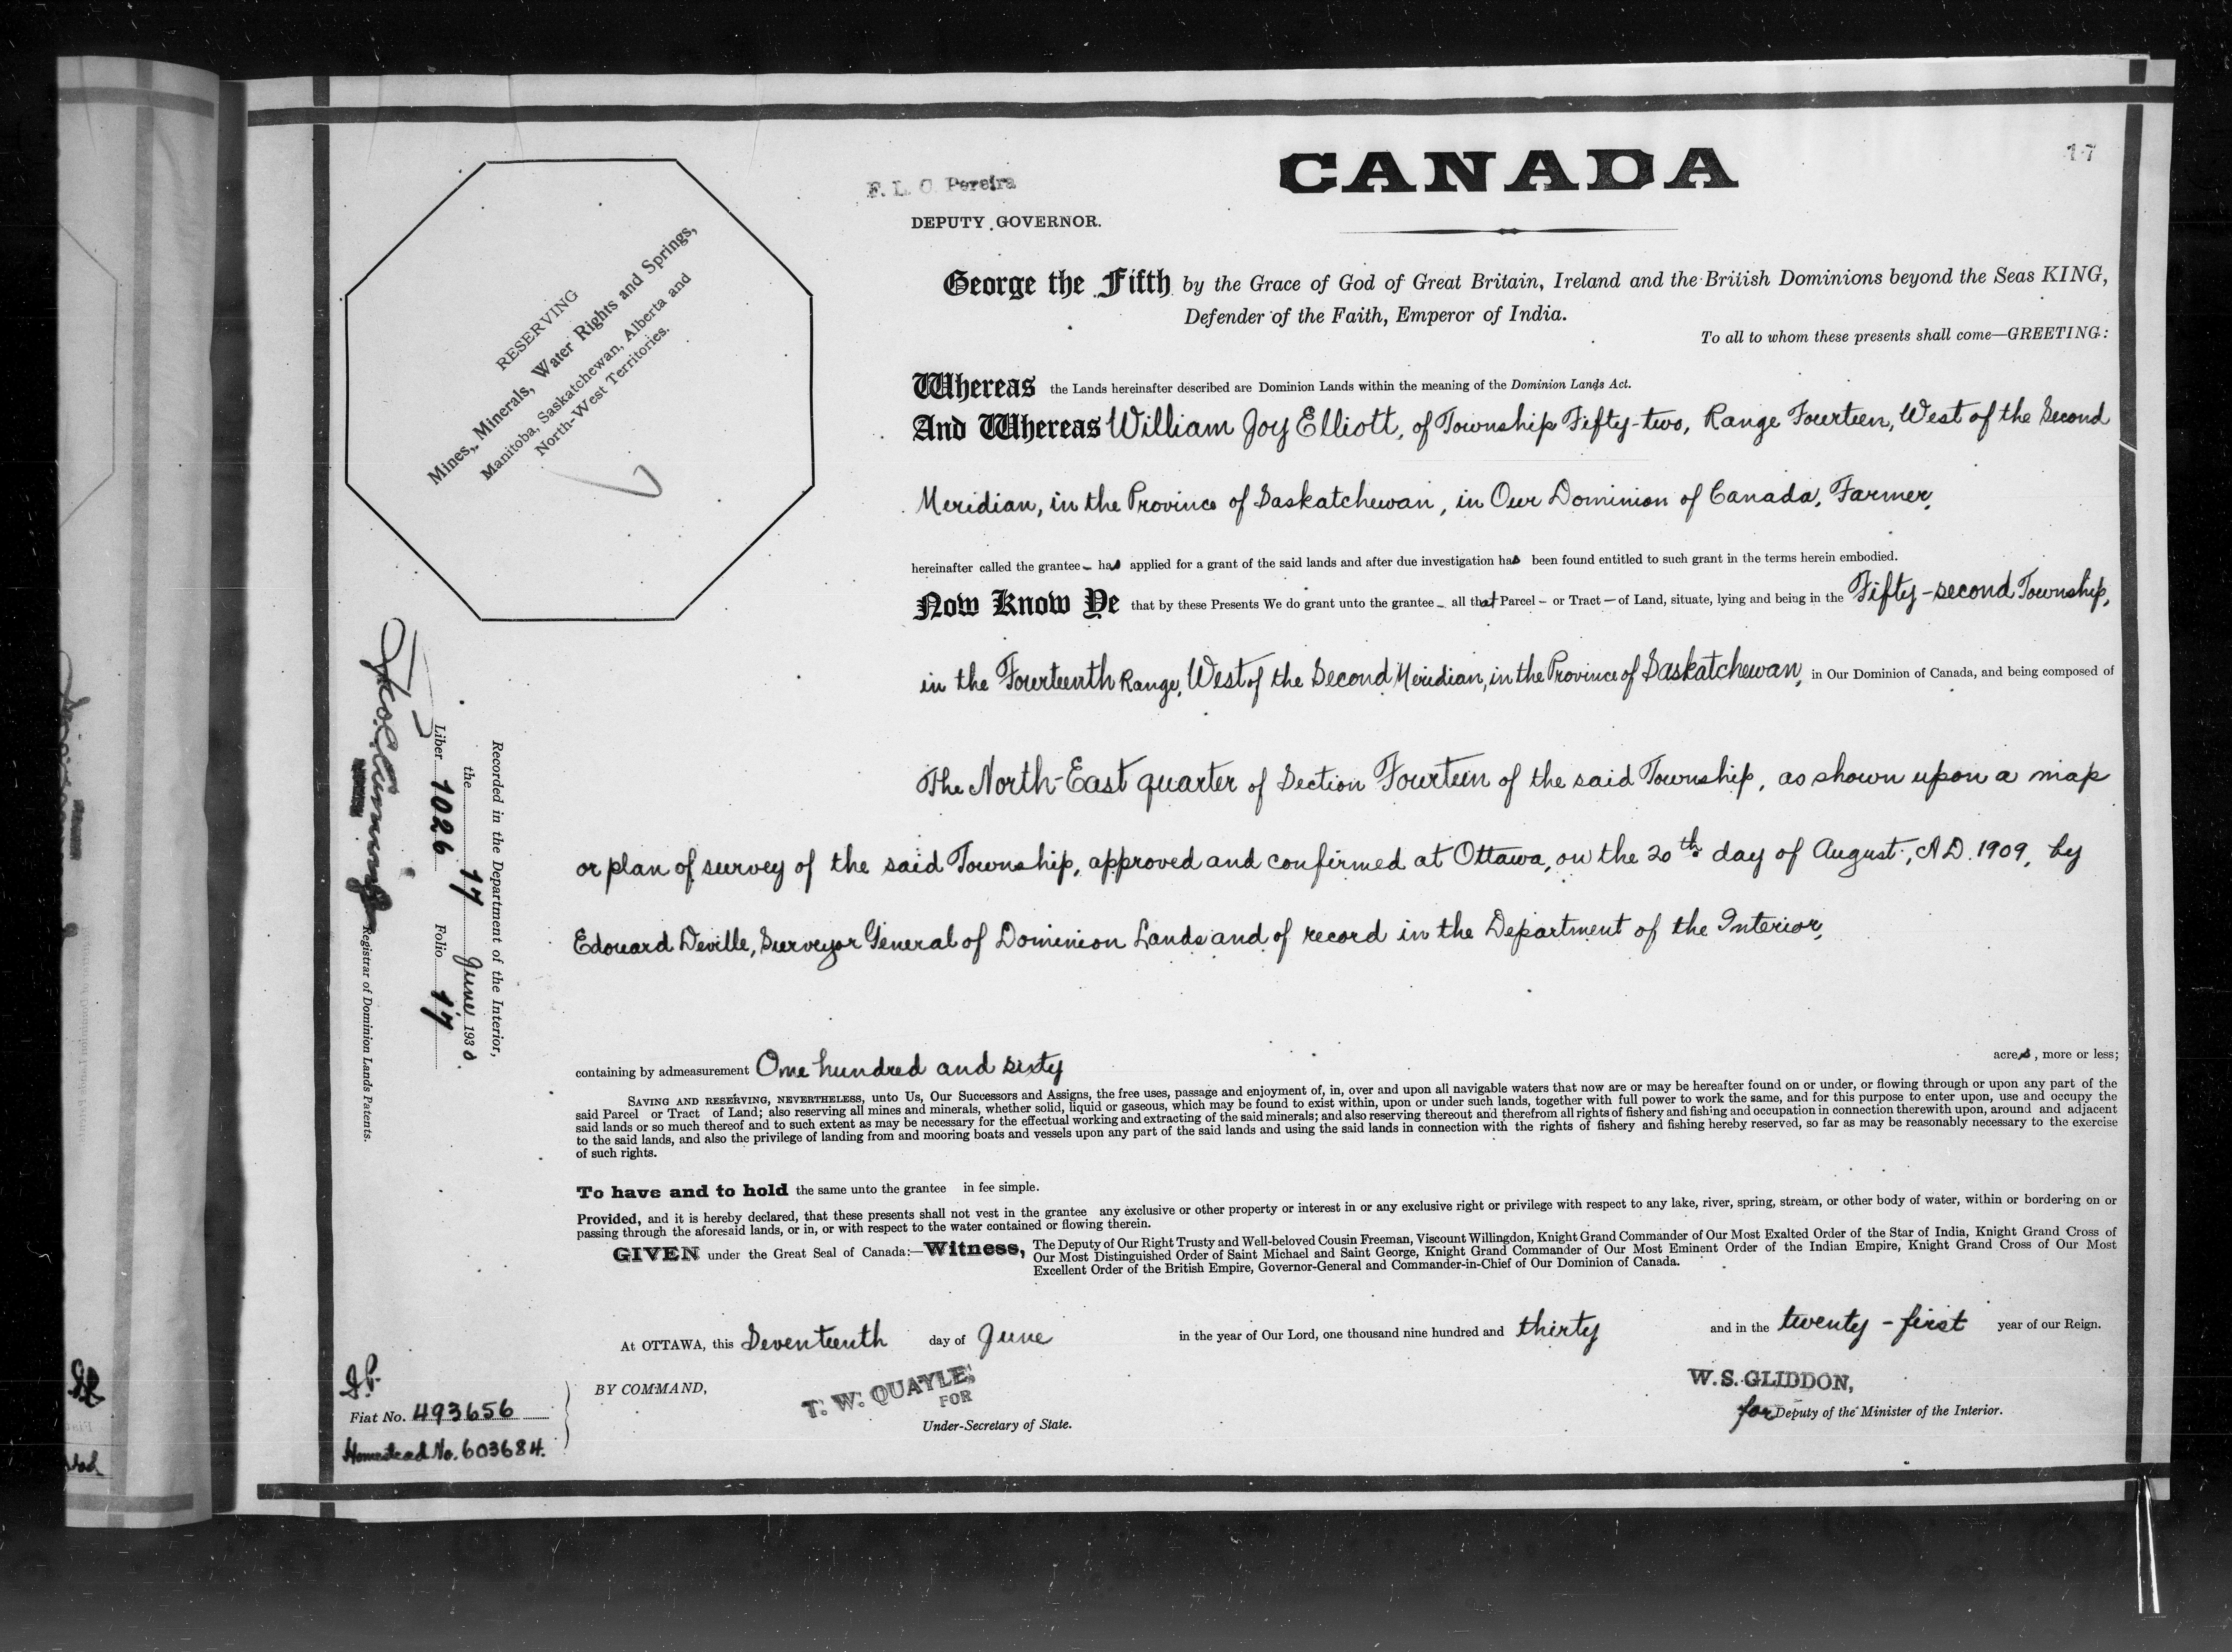 CANADA
17
F. L. C. Pereira
DEPUTY GOVERNOR.
RESERVING
Mines, Minerals, Water Rights and Springs,
Manitoba, Saskatchewan, Alberta and
North-West Territories.
George the Fifth by the Grace of God of Great Britain, Ireland and the British Dominions beyond the Seas KING,
Defender of the Faith, Emperor of India.
To all to whom these presents shall come—GREETING:
Whereas the Lands hereinafter described are Dominion Lands within the meaning of the Dominion Lands Act.
And Whereas William Joy Elliott, of Township Fifty-two, Range Fourteen, West of the Second
Meridian, in the Province of Saskatchewan, in Our Dominion of Canada, Farmer,
hereinafter called the grantee – has applied for a grant of the said lands and after due investigation has been found entitled to such grant in the terms herein embodied.
Now Know Ye that by these Presents We do grant unto the grantee – all that Parcel – or Tract – of Land, situate, lying and being in the Fifty-second Township,
in the Fourteenth Range, West of the Second Meridian, in the Province of Saskatchewan, in Our Dominion of Canada, and being composed of
The North-East quarter of Section Fourteen of the said Township, as shown upon a map
or plan of survey of the said Township, approved and confirmed at Ottawa, on the 20th day of August, A.D. 1909, by
Edouard Deville, Surveyor General of Dominion Lands and of record in the Department of the Interior,
containing by admeasurement One hundred and sixty acres, more or less;
SAVING AND RESERVING, NEVERTHELESS, unto Us, Our Successors and Assigns, the free uses, passage and enjoyment of, in, over and upon all navigable waters that now are or may be hereafter found on or under, or flowing through or upon any part of the
said Parcel or Tract of Land; also reserving all mines and minerals, whether solid, liquid or gaseous, which may be found to exist within, upon or under such lands, together with full power to work the same, and for this purpose to enter upon, use and occupy the
said lands or so much thereof and to such extent as may be necessary for the effectual working and extracting of the said minerals; and also reserving thereout and therefrom all rights of fishery and fishing and occupation in connection therewith upon, around and adjacent
to the said lands, and also the privilege of landing from and mooring boats and vessels upon any part of the said lands and using the said lands in connection with the rights of fishery and fishing hereby reserved, so far as may be reasonably necessary to the exercise
of such rights.
To have and to hold the same unto the grantee in fee simple.
Provided, and it is hereby declared, that these presents shall not vest in the grantee any exclusive or other property or interest in or any exclusive right or privilege with respect to any lake, river, spring, stream, or other body of water, within or bordering on or
passing through the aforesaid lands, or in, or with respect to the water contained or flowing therein.
GIVEN under the Great Seal of Canada:—Witness, The Deputy of Our Right Trusty and Well-beloved Cousin Freeman, Viscount Willingdon, Knight Grand Commander of Our Most Exalted Order of the Star of India, Knight Grand Cross of
Our Most Distinguished Order of Saint Michael and Saint George, Knight Grand Commander of Our Most Eminent Order of the Indian Empire, Knight Grand Cross of Our Most
Excellent Order of the British Empire, Governor-General and Commander-in-Chief of Our Dominion of Canada.
At OTTAWA, this Seventeenth day of June in the year of Our Lord, one thousand nine hundred and thirty and in the twenty-first year of our Reign.
BY COMMAND,
T. W. QUAYLE,
FOR
Under-Secretary of State.
W. S. GLIDDON,
for Deputy of the Minister of the Interior.
Fiat No. 493656
Homestead No. 603684.
Recorded in the Department of the Interior,
the 17 June 1930
Liber 1026 Folio 17
Registrar of Dominion Lands Patents.